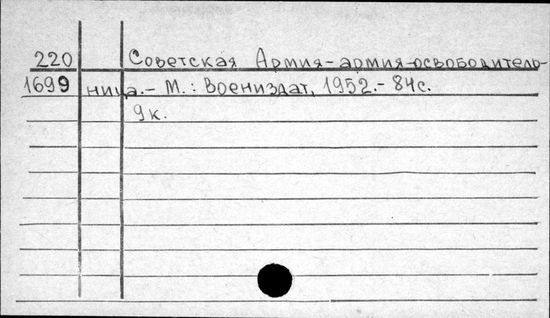 220 Советская Армия-армия-освободитель-
1699 ница.- М.: Воениздат, 1952.- 84с.
9к.